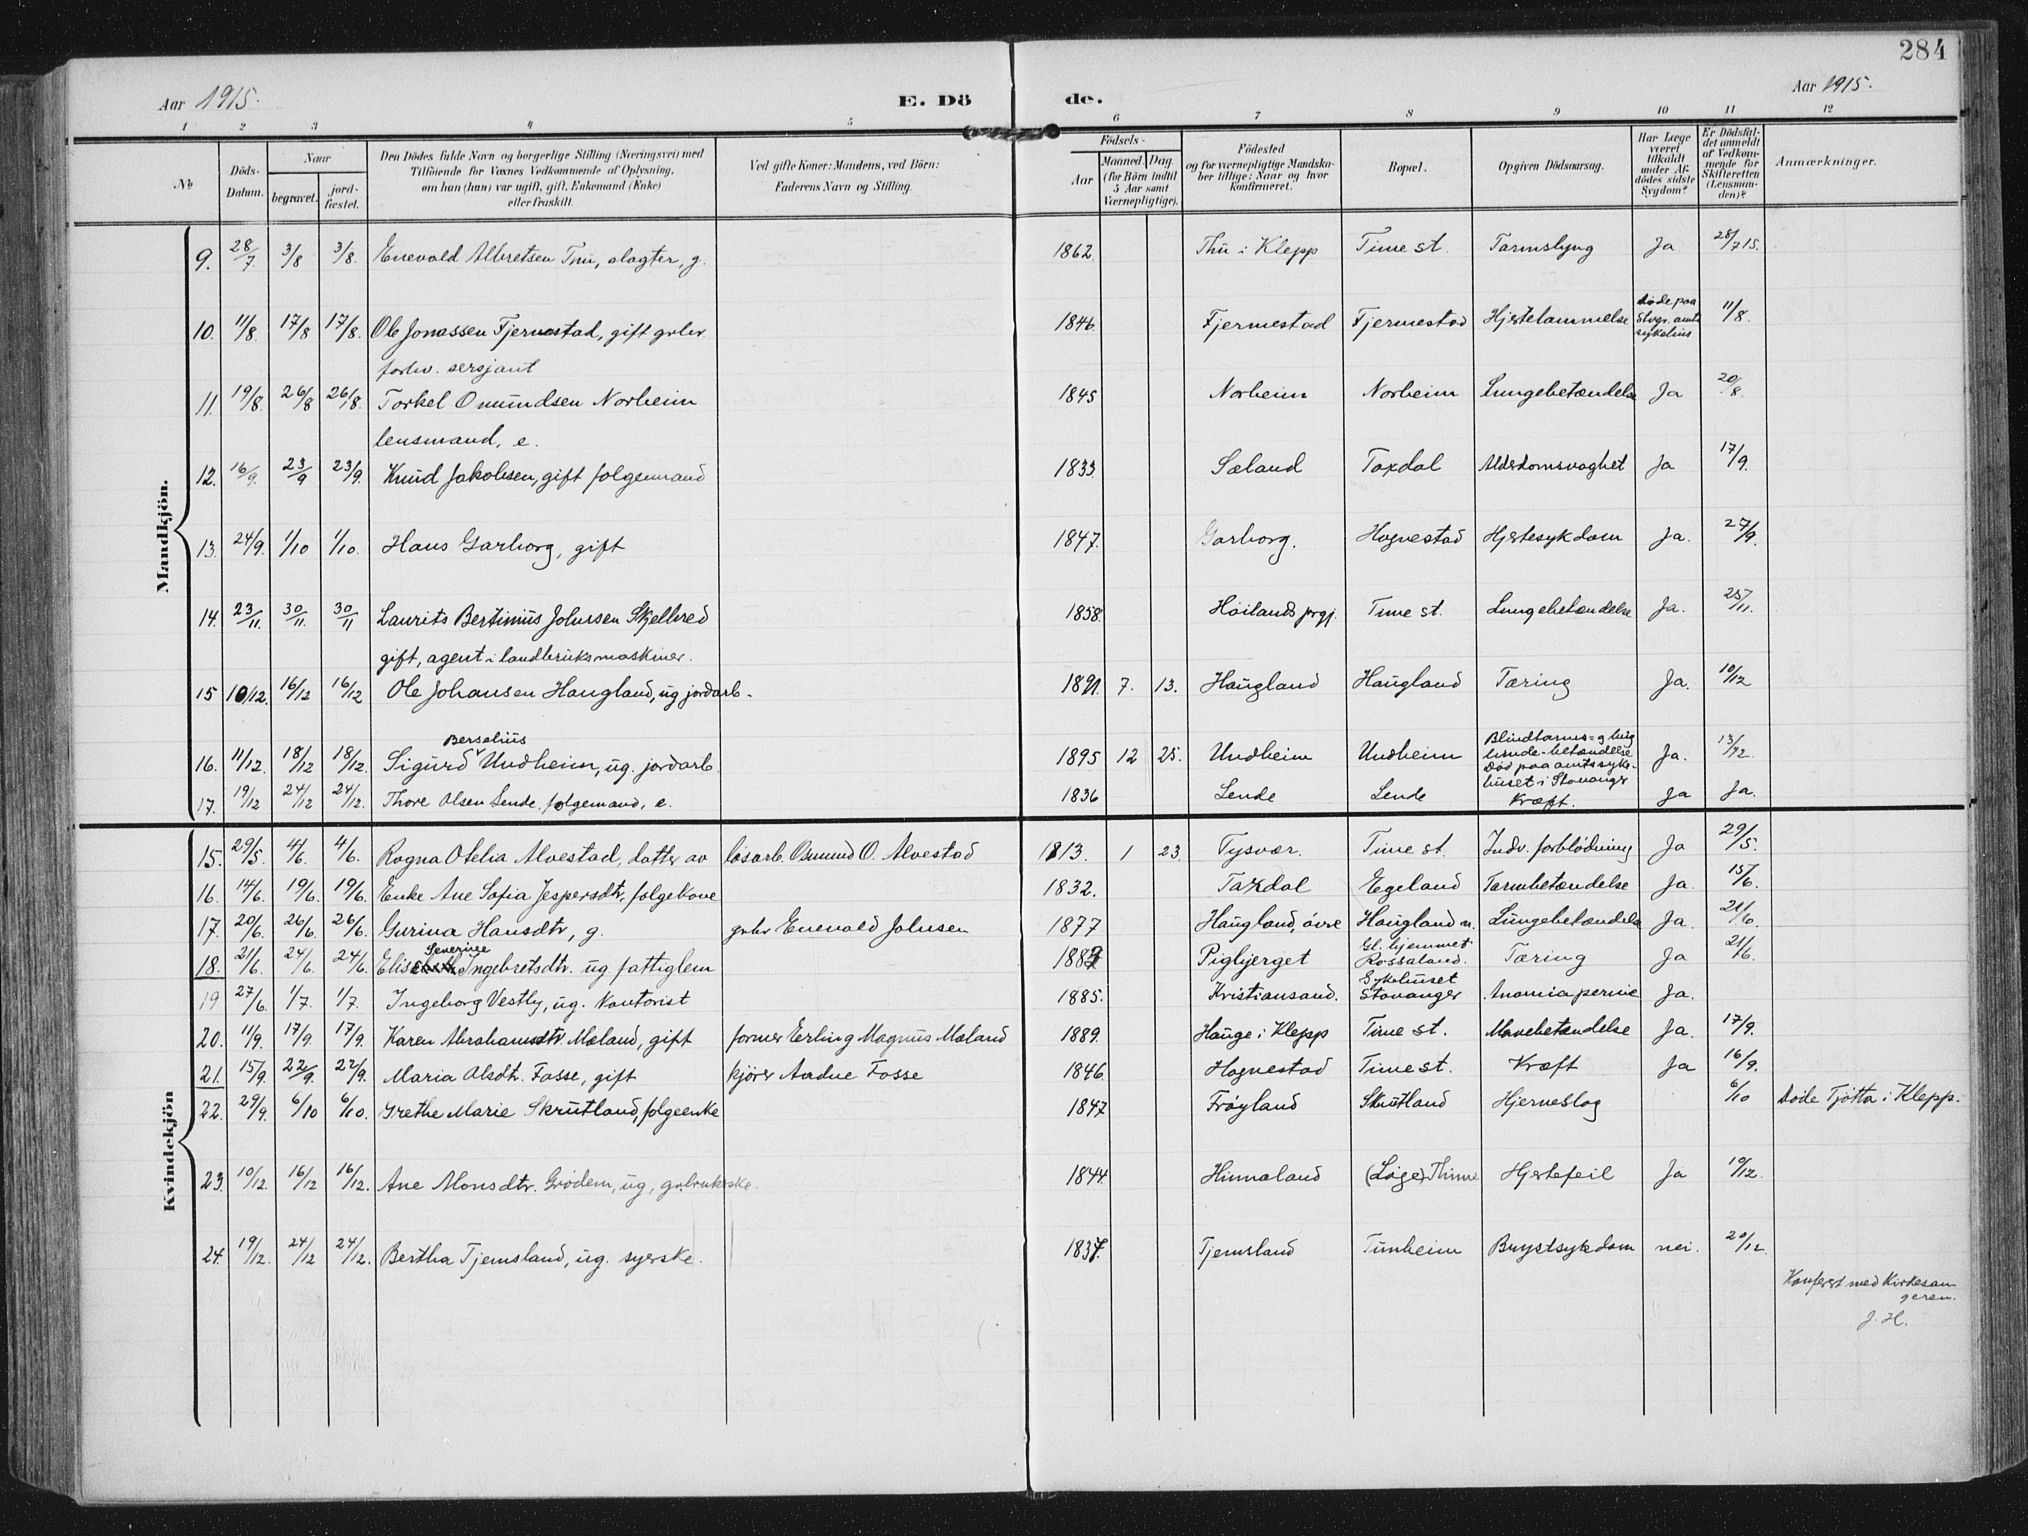 284
Aar 1915.
E. Dö
de.
Aar 1915.
1 2 3 4 5 6 7 8 9 10 11 12
No
Döds-Datum.
Naar
begravet.
jord-fæstet.
Den Dödes fulde Navn og borgerlige Stilling (Næringsvei) med
Tilföiende for Voxnes Vedkommende af Oplysning,
om han (hun) var ugift, gift, Enkemand (Enke)
eller fraskilt.
Ved gifte Koner: Mandens, ved Börn:
Faderens Navn og Stilling.
Födsels-
Aar
Maaned. Dag.
(for Börn indtil
5 Aar samt
Værnepligtige).
Födested
og for værnepligtige Mandska-
ber tillige: Naar og hvor
konfirmeret.
Bopæl.
Opgiven Dödsaarsag.
Har Læge
været
tilkaldt
under Af-
dödes sidste
Sygdom?
Er Dödsfal-
det anmeldt
af Vedkom-
mende for
Skifteretten
(Lensman-
den)?
Anmærkninger.
Mandkjön.
9. 28/7 3/8 3/8. Enevold Albretsen Thu, slagter, g. 1862 Thu i Klepp Time st. Tarmslyng Ja 28/7 15.
10. 11/8. 17/8 17/8. Ole Jonassen Fjermestad, gift grbr. 1846. Fjermestad Fjermestad Hjertelammelse døde paa Stvgr. amts sykehus 11/8.
forhv. sersjant
11. 19/8. 26/8 26/8. Torkel Omundsen Norheim 1845 Norheim Norheim Lungebetændelse Ja 20/8.
lensmand, e.
12. 16/9. 23/9 23/9. Knud Jakobsen, gift folgemand 1833. Sæland Taxdal Alderdomsvaghet Ja 17/9.
13. 24/9. 1/10 1/10. Hans Garborg, gift 1847. Garborg. Hognestad Hjertesykdom Ja. 27/9.
14. 23/11. 30/11. 30/11 Laurits Bertinius Johnsen Skjelbred 1858. Høilands prgj. Time st. Lungebetændelse Ja. 25/11.
gift, agent i landbruksmaskiner.
15 10/12. 16/12 16/12 Ole Johansen Haugland, ug jordarb. 1891 7. 13. Haugland Haugland Tæring Ja. 10/12
16. 11/12. 18/12 18/12. Sigurd Berselius Undheim, ug. jordarb 1895 12 25. Undheim Undheim Blindtarms= og bug hinde-betændelse Død paa amtssyke- huset i Stavanger Ja. 13/12.
17. 19/12 24/12 24/12. Thore Olsen Lende. folgemand, e. 1836 Lende Lende Kræft. Ja Ja.
Kvindekjön
15. 29/5. 4/6. 4/6. Ragna Otelia Alvestad, datter av løsarb. Osmund O. Alvestad 1913. 1 23 Tysvær. Time st. Indv. forblødning Ja 29/5.
16. 14/6. 19/6. 19/6. Enke Ane Sofia Jespersdtr, folgekone 1832. Taxdal Egeland Tarmbetændelse Ja. 15/6.
17. 20/6. 26/6. 26/6. Gurina Hansdtr, g. grbr Enevald Johnsen 1877 Haugland, øvre Haugland n. Lungebetændelse Ja. 21/6.
18. 21/6. 24/6. 24/6. Elise Severine Ingebretsdtr. ug fattiglem Pigbjerget Gl. hjemmet Rossaland. Tæring Ja 21/6.
19 27/6. 1/7. 1/7. Ingeborg Vestly, ug. Kontorist 1885. Kristiansand. Sykehuset Stavanger Ja.
20. 11/9. 17/9. 17/9. Karen Abrahamsdtr. Mæland, gift former Erling Magnus Mæland 1889. Hauge i Klepp Time st. Mavebetændelse Ja. 17/9.
21. 15/9. 22/9. 22/9. Maria Olsdtr. Fosse, gift kjører Aadne Fosse 1846 Hognestad Time st. Kræft Ja 16/9.
22. 29/9. 6/10 6/10. Grethe Marie Skrutland, folgeenke 1847 Frøyland Skrutland Hjerneslag 6/10 Døde Tjøtta i Klepp.
23. 10/12. 16/12 16/12. Ane Monsdtr. Grødem, ug, grbrukerske. 1844 Hinnaland (Løge) Thime Hjertefeil Ja 10/12.
24. 19/12. 24/12 24/12. Bertha Tjemsland, ug. syerske. 1837. Tjemsland Tunheim Brystsykdom nei. 20/12.
Konferert med Kirkesan-
geren.
J. H.